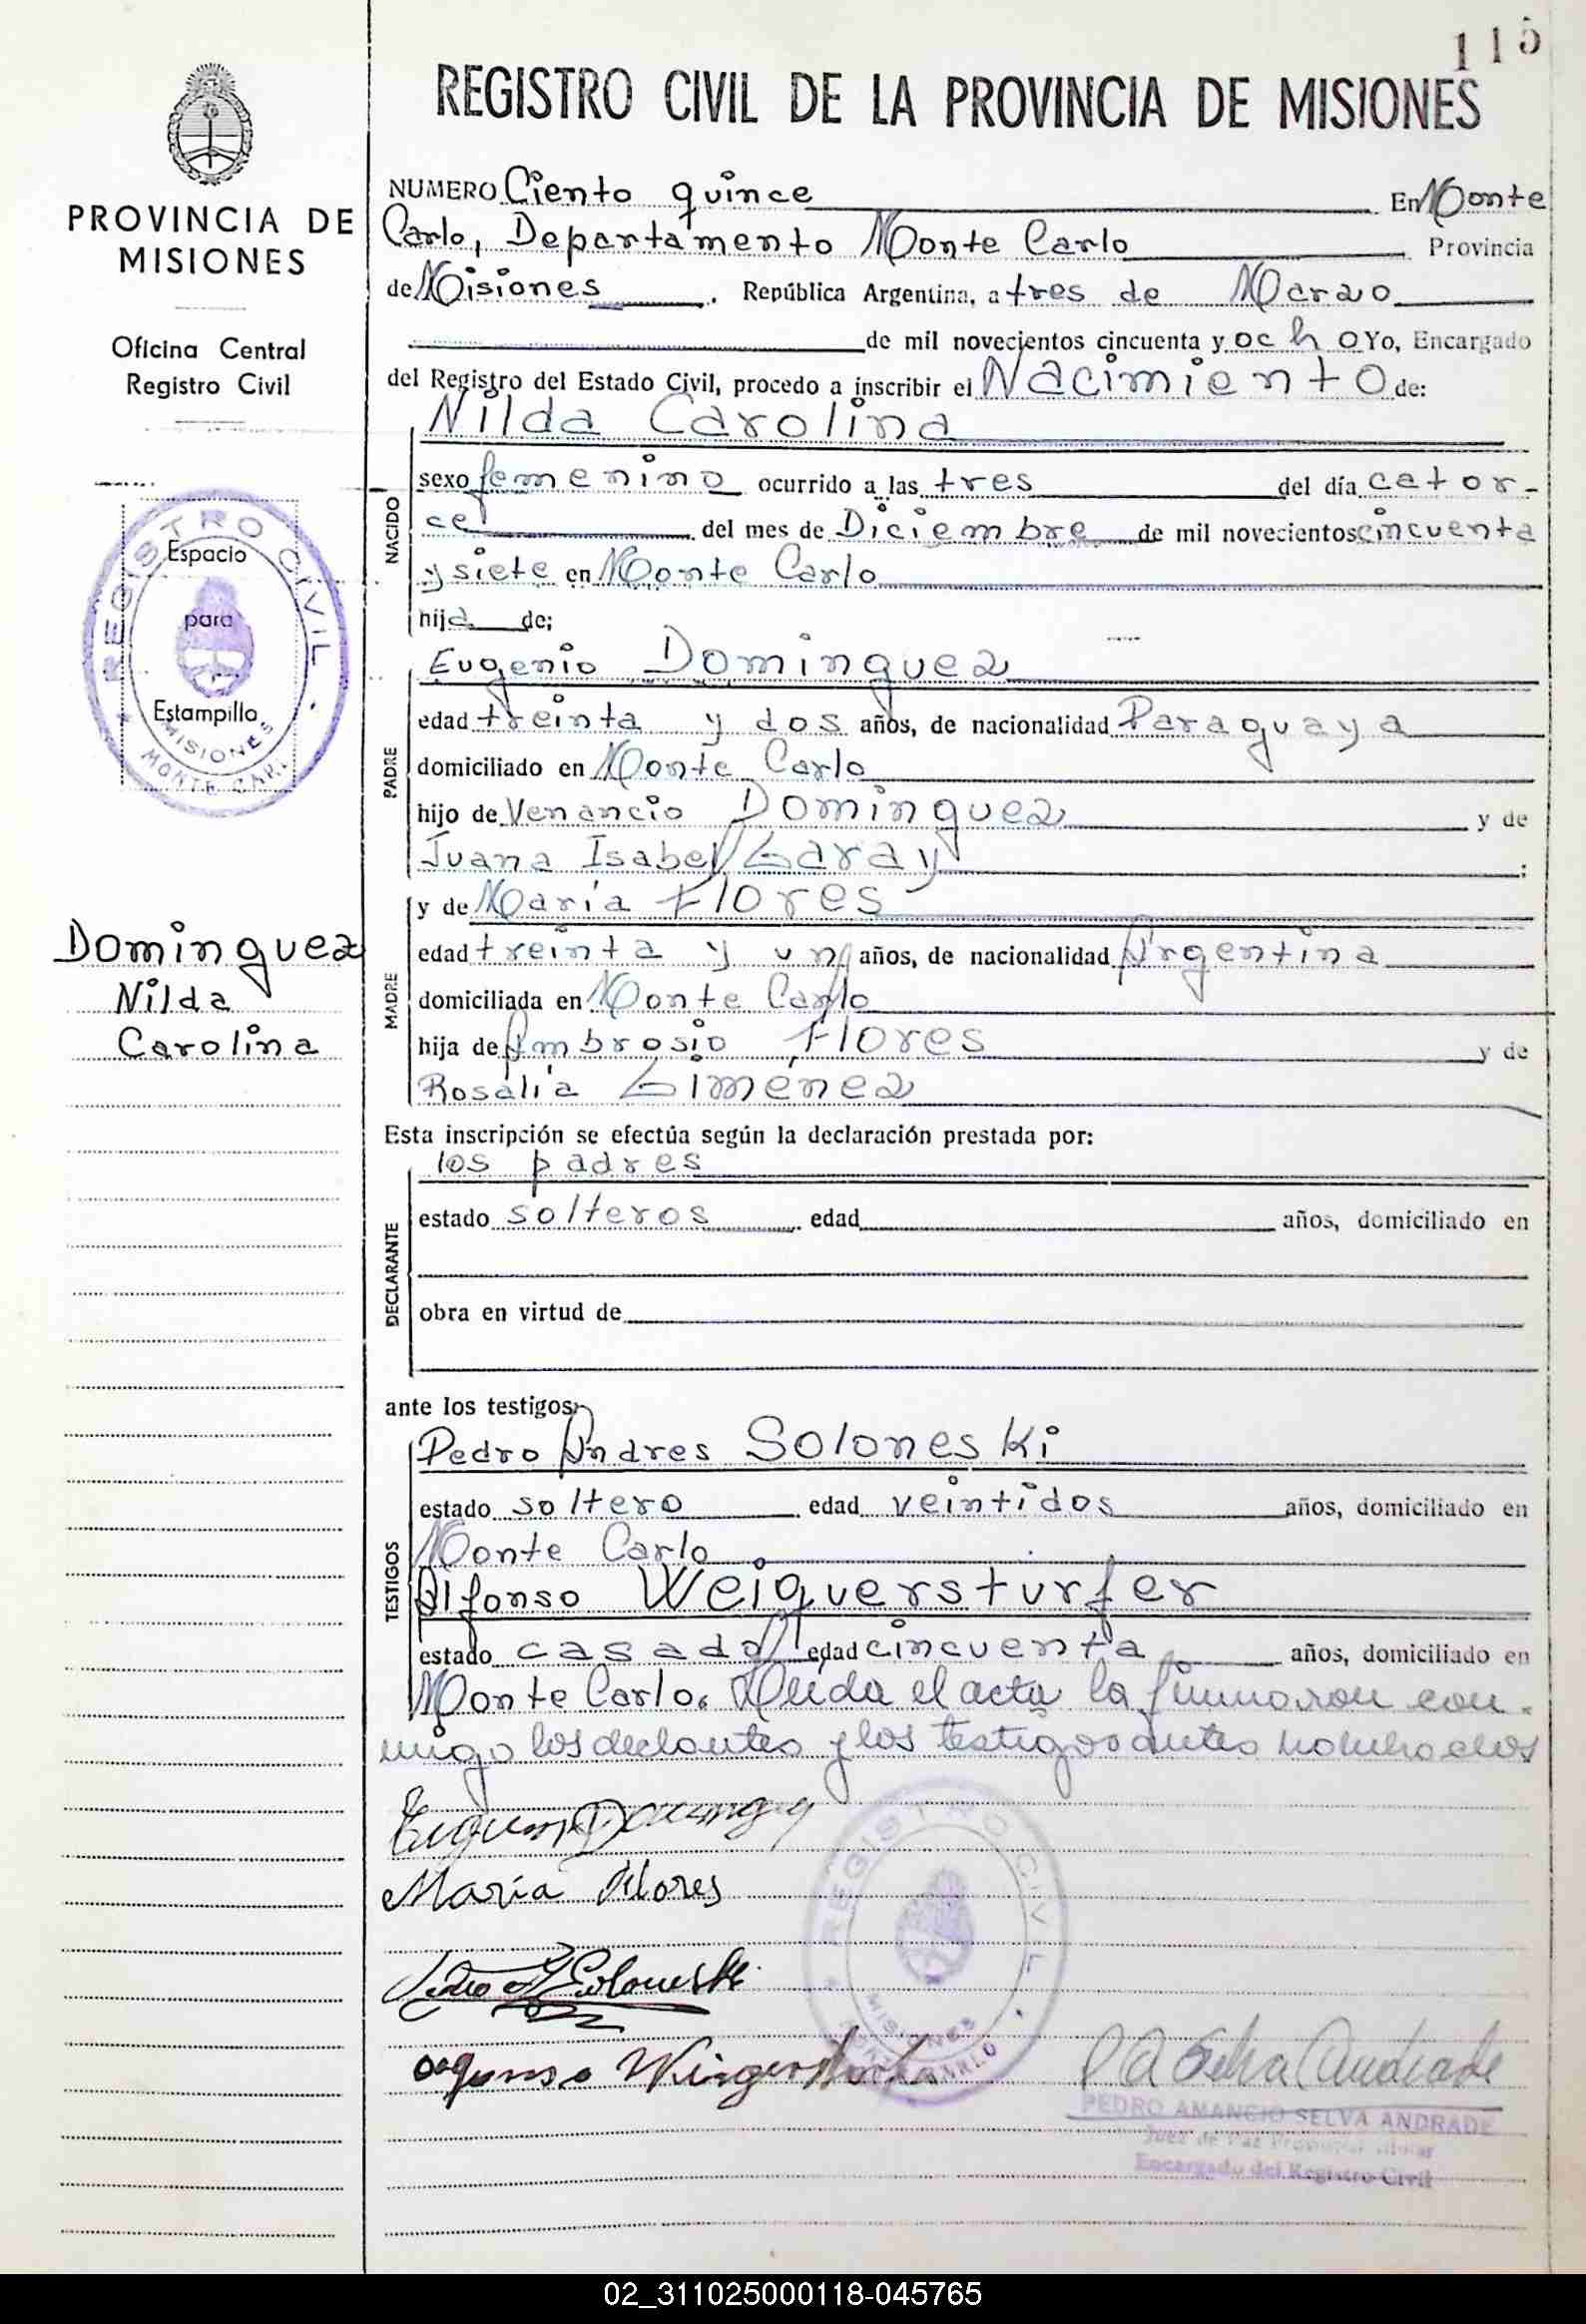 115
REGISTRO CIVIL DE LA PROVINCIA DE MISIONES
PROVINCIA DE
MISIONES
Oficina Central
Registro Civil
REGISTRO CIVIL
Espacio
para
Estampilla
MISIONES
MONTE CARL
Dominguez
Nilda
Carolina
NUMERO Ciento quince En Monte
Carlo, Departamento Monte Carlo Provincia
de Misiones, República Argentina, a tres de Marzo
de mil novecientos cincuenta y ocho Yo, Encargado
del Registro del Estado Civil, procedo a inscribir el Nacimiento de:
NACIDO
Nilda Carolina
sexo femenino ocurrido a las tres del día cator-
ce del mes de Diciembre de mil novecientos cincuenta
y siete en Monte Carlo
hija de;
PADRE
Eugenio Dominguez
edad treinta y dos años, de nacionalidad Paraguaya
domiciliado en Monte Carlo
hijo de Venancio Dominguez y de
Juana Isabel Garay ;
MADRE
y de María Flores
edad treinta y un años, de nacionalidad Argentina
domiciliada en Monte Carlo
hija de Ambrosio Flores y de
Rosalia Giménez
Esta inscripción se efectúa según la declaración prestada por:
DECLARANTE
los padres
estado solteros edad años, domiciliado en
obra en virtud de
ante los testigos:
TESTIGOS
Pedro Andres Soloneski
estado soltero edad veintidos años, domiciliado en
Monte Carlo
Alfonso Weiguersturfer
estado casado edad cincuenta años, domiciliado en
Monte Carlo. Leida el acta la firmaron con-
migo los declantes y los testigos antes nombrados
María Flores
REGISTRO CIVIL
MISIONES
MONTE CARLO
PEDRO AMANCIO SELVA ANDRADE
Juez de Paz
Encargado del Registro Civil
02_311025000118-045765